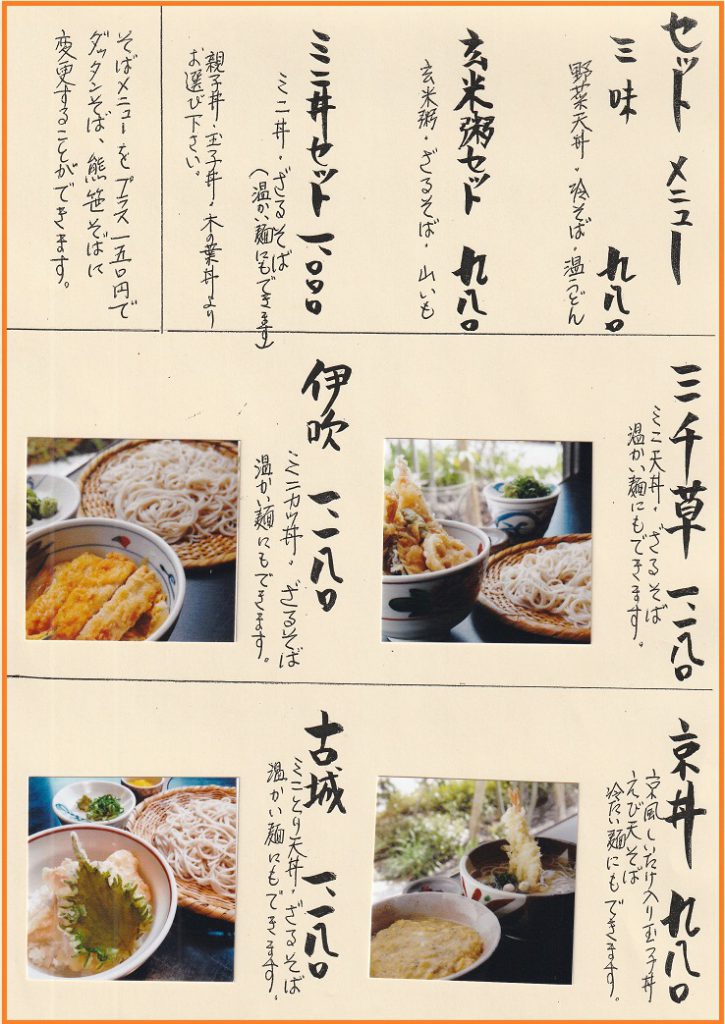 セット メニュー
三味 九八〇
野菜天丼・冷そば・温うどん
玄米粥セット 九八〇
玄米粥・ざるそば・山いも
ミニ丼セット 一、〇〇〇
ミニ丼・ざるそば
(温かい麺にもできます)
親子丼・玉子丼・木の葉丼より
お選び下さい。
そばメニューをプラス一五〇円で
ダッタンそば、熊笹そばに
変更することができます。
三千草 一、二八〇
ミニ天丼・ざるそば
温かい麺にもできます。
伊吹 一、一八〇
ミニカツ丼・ざるそば
温かい麺にもできます。
京丼 九八〇
京風しいたけ入り玉子丼
えび天そば
冷たい麺にもできます。
古城 一、一八〇
ミニとり天丼・ざるそば
温かい麺にもできます。